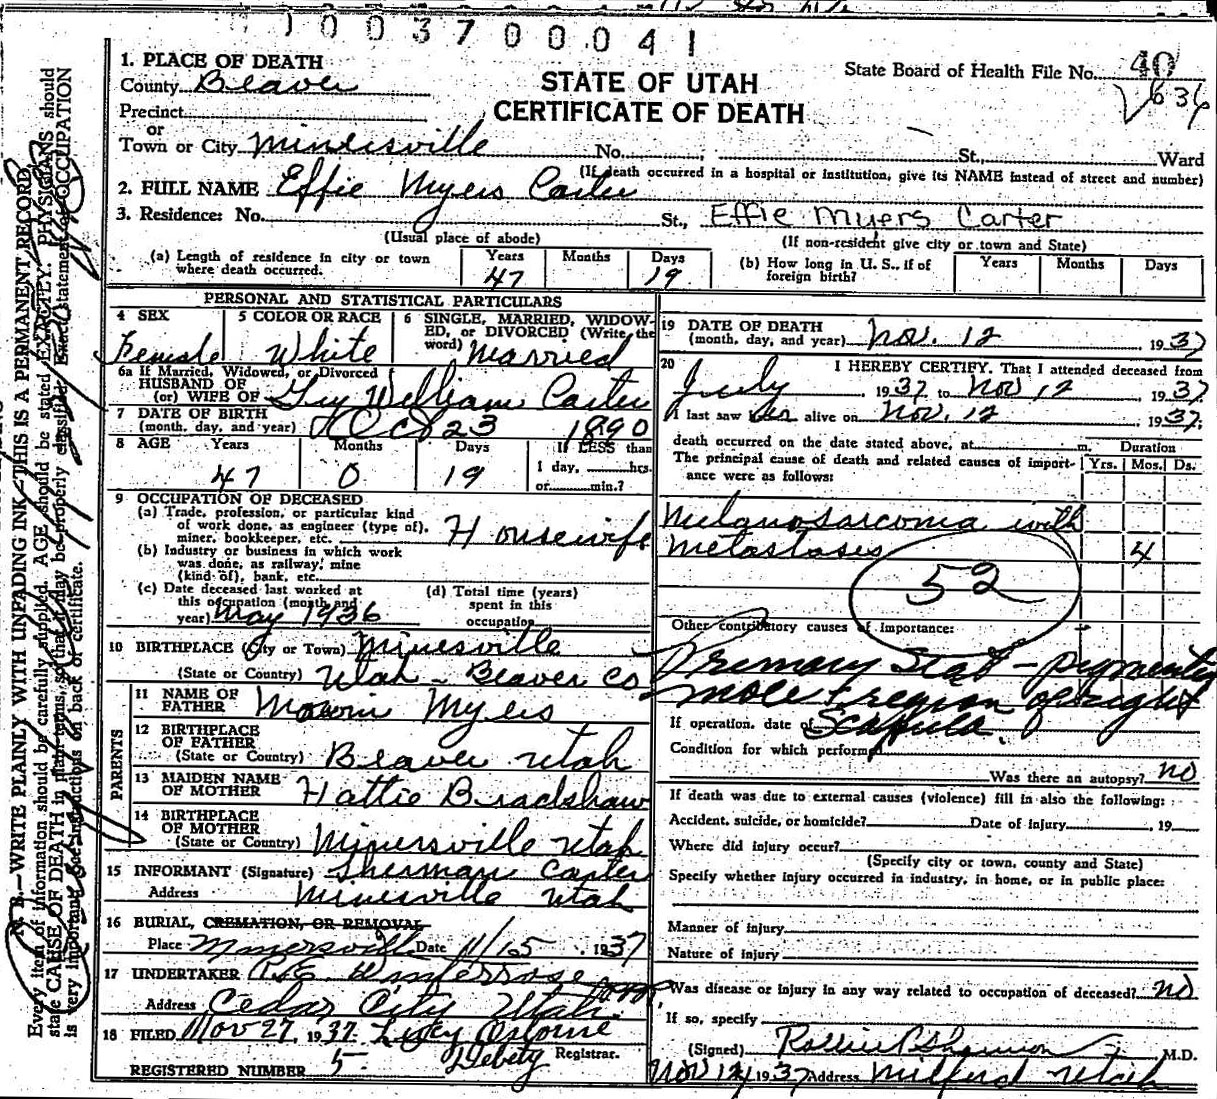 1003700041
1. PLACE OF DEATH
County Beaver
STATE OF UTAH
CERTIFICATE OF DEATH
State Board of Health File No. 40
√636
Precinct
or
Town or City Minersville No. St., Ward
(If death occurred in a hospital or institution, give its NAME instead of street and number)
2. FULL NAME Effie Myers Carter
3. Residence: No. St., Effie Myers Carter
(Usual place of abode) (If non-resident give city or town and State)
(a) Length of residence in city or town where death occurred. Years 47 Months Days 19
(b) How long in U. S., if of foreign birth? Years Months Days
PERSONAL AND STATISTICAL PARTICULARS
4 SEX Female
5 COLOR OR RACE White
6 SINGLE, MARRIED, WIDOWED, or DIVORCED (Write the word) Married
6a If Married, Widowed, or Divorced
HUSBAND OF
(or) WIFE OF Guy William Carter
7 DATE OF BIRTH
(month, day, and year) Oct 23 1890
8 AGE Years 47 Months 0 Days 19
If LESS than
1 day, hrs.
or min.?
9 OCCUPATION OF DECEASED
(a) Trade, profession, or particular kind
of work done, as engineer (type of),
miner, bookkeeper, etc. Housewife
(b) Industry or business in which work
was done, as railway, mine
(kind of), bank, etc.
(c) Date deceased last worked at
this occupation (month and
year) May 1936
(d) Total time (years)
spent in this
occupation
10 BIRTHPLACE (City or Town) Minersville
(State or Country) Utah - Beaver Co
PARENTS
11 NAME OF
FATHER Myers
12 BIRTHPLACE
OF FATHER
(State or Country) Beaver Utah
13 MAIDEN NAME
OF MOTHER Hattie Bradshaw
14 BIRTHPLACE
OF MOTHER
(State or Country) Minersville Utah
15 INFORMANT (Signature) Sherman Carter
Address Minersville Utah
16 BURIAL, CREMATION, OR REMOVAL
Place Minersville Date 11/15 1937
17 UNDERTAKER
Address Cedar City Utah.
18 FILED Nov 27, 1937 Osborne
Debety Registrar.
REGISTERED NUMBER 5
19 DATE OF DEATH
(month, day, and year) Nov. 12, 1937
20 I HEREBY CERTIFY. That I attended deceased from
July 1937 to Nov 12, 1937
I last saw her alive on Nov. 12, 1937;
death occurred on the date stated above, at m.
The principal cause of death and related causes of importance were as follows:
Duration
Yrs. Mos. Ds.
Melanosarcoma with
metastases 4
52
Other contributory causes of Importance:
Primary - pigmented
mole region of right
scapula.
If operation, date of
Condition for which performed
Was there an autopsy? no
If death was due to external causes (violence) fill in also the following:
Accident, suicide, or homicide? Date of injury , 19
Where did injury occur?
(Specify city or town, county and State)
Specify whether injury occurred in industry, in home, or in public place:
Manner of injury
Nature of injury
Was disease or injury in any way related to occupation of deceased? no
If so, specify
(Signed) M.D.
Nov 1937 Address Milford Utah
N. B.—WRITE PLAINLY WITH UNFADING INK—THIS IS A PERMANENT RECORD
Every item of information should be carefully supplied. AGE should be stated EXACTLY. PHYSICIANS should
state CAUSE OF DEATH in plain terms, so that it may be properly classified. Exact statement of OCCUPATION
is very important. See instructions on back of certificate.